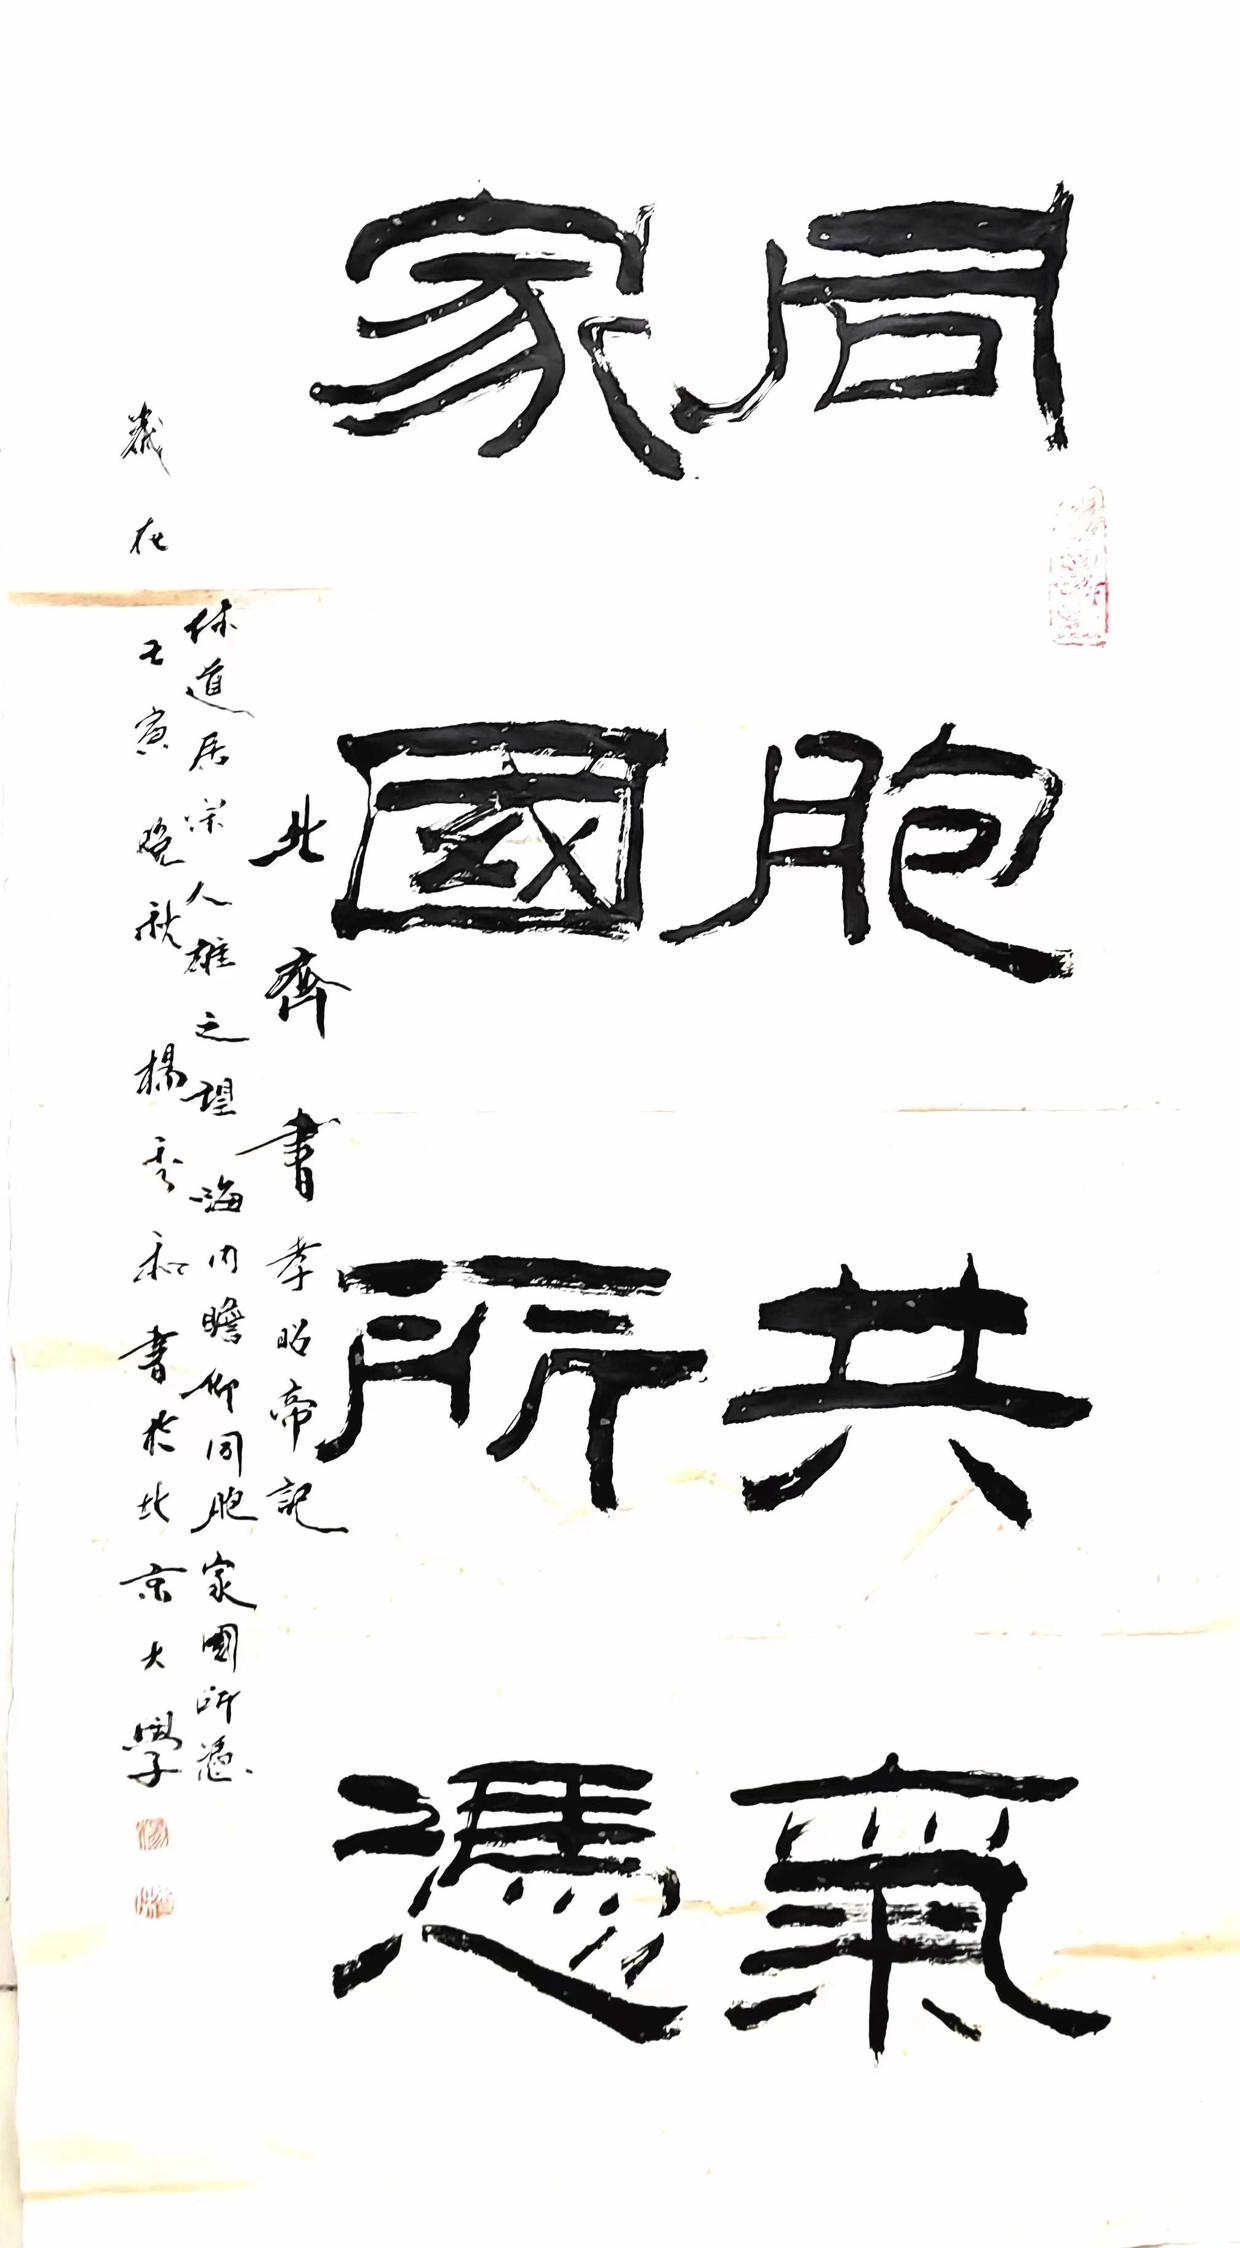 同胞共氣
家國所憑
北齊書孝昭帝記
休道居深人雄之望海内瞻仰同胞家國所憑
歲在壬寅晚秋楊秀和書於北京大學